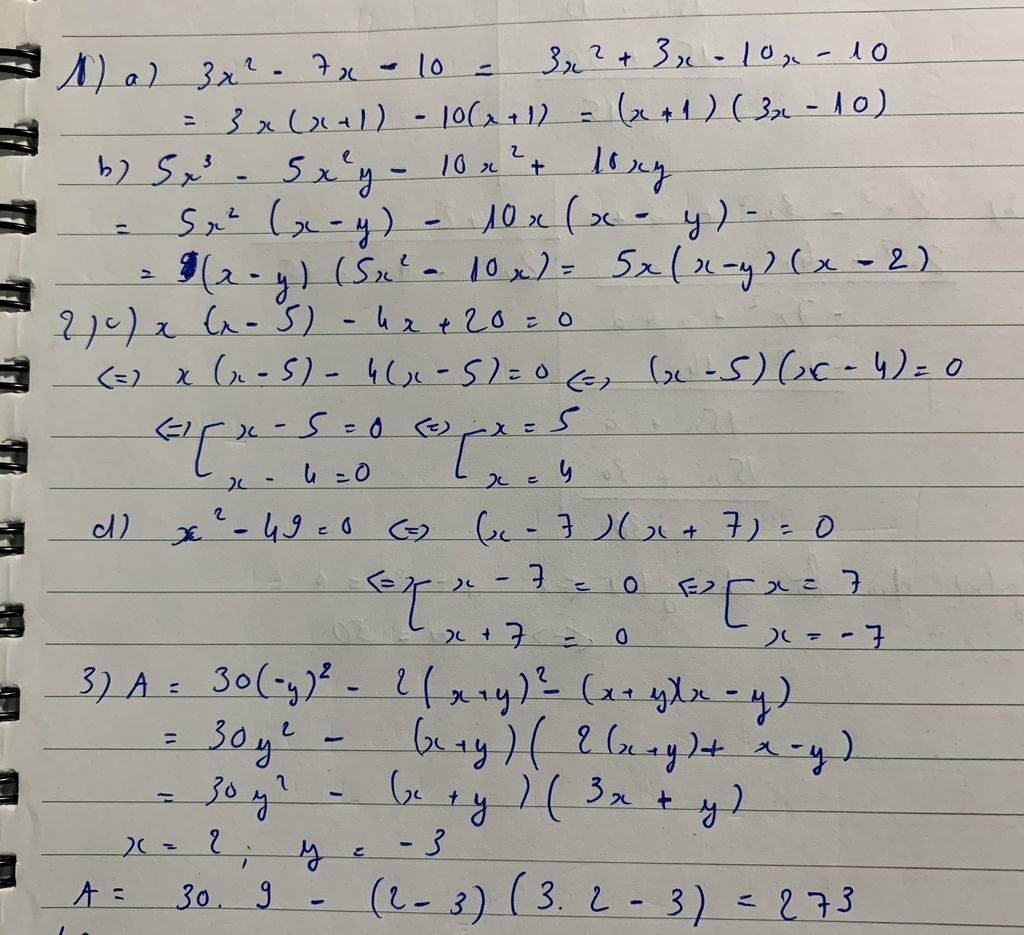 1) a) 3x² - 7x - 10 = 3x² + 3x - 10x - 10
= 3x(x+1) - 10(x+1) = (x+1)(3x - 10)
b) 5x³ - 5x²y - 10x² + 10xy
= 5x² (x-y) - 10x(x - y) -
= (x-y)(5x² - 10x) = 5x(x-y)(x - 2)
2) c) x (x - 5) - 4x + 20 = 0
<=> x (x - 5) - 4(x - 5) = 0 <=> (x - 5)(x - 4) = 0
<=> [ x - 5 = 0 <=> [ x = 5
x - 4 = 0 x = 4
d) x² - 49 = 0 <=> (x - 7)(x + 7) = 0
<=> [ x - 7 = 0 <=> [ x = 7
x + 7 = 0 x = -7
3) A = 30(-y)² - 2(x+y)² - (x+y)(x - y)
= 30y² - (x+y)( 2(x+y) + x - y)
= 30y² - (x + y)( 3x + y)
x = 2 ; y = -3
A = 30. 9 - (2 - 3) (3. 2 - 3) = 273